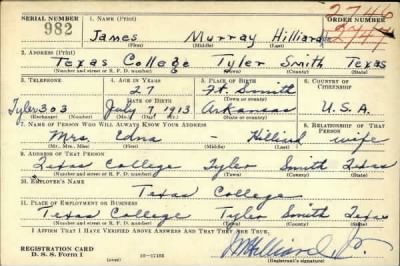 SERIAL NUMBER 1. NAME (Print) ORDER NUMBER
982 James Murray Hilliard 2746
(First) (Middle) (Last) 2747
2. ADDRESS (Print)
Texas College Tyler Smith Texas
(Number and street or R. F. D. number) (Town) (County) (State)
3. TELEPHONE 4. AGE IN YEARS 5. PLACE OF BIRTH 6. COUNTRY OF CITIZENSHIP
27 Ft. Smith
DATE OF BIRTH (Town or county)
Tyler 303 July 7, 1913 Arkansas U.S.A.
(Exchange) (Number) (Mo.) (Day) (Yr.) (State or country)
7. NAME OF PERSON WHO WILL ALWAYS KNOW YOUR ADDRESS 8. RELATIONSHIP OF THAT PERSON
Mrs. Edna - Hilliard wife
(Mr., Mrs., Miss) (First) (Middle) (Last)
9. ADDRESS OF THAT PERSON
Texas College Tyler Smith Texas
(Number and street or R. F. D. number) (Town) (County) (State)
10. EMPLOYER'S NAME
Texas College
11. PLACE OF EMPLOYMENT OR BUSINESS
Texas College Tyler Smith Texas
(Number and street or R. F. D. number) (Town) (County) (State)
I AFFIRM THAT I HAVE VERIFIED ABOVE ANSWERS AND THAT THEY ARE TRUE.
REGISTRATION CARD
D. S. S. Form 1 (over) 16-17105 JMHilliard Jr.
(Registrant's signature)